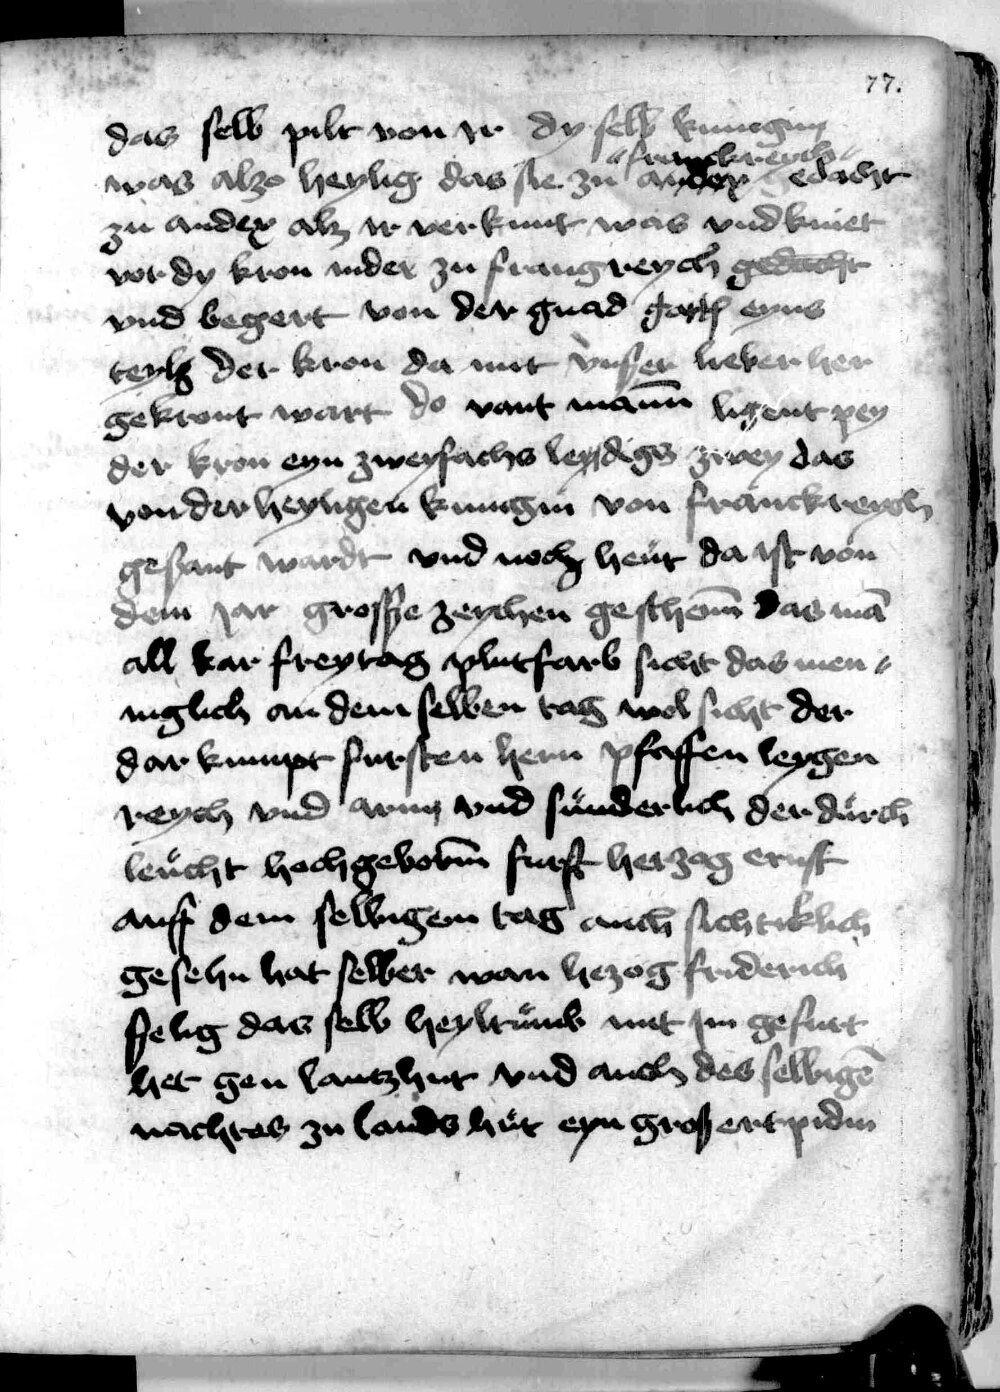 77.
das selb pilt von ir dy selb kunigin
franckreych
was alzo heylig das sie zu andex gedacht
zu andex alz ir verkunt was vnd kniet
vor dy kron in der zu frangreych gedacht
vnd begert von der gnad gotz eyns
teylz der kron da mit vnsser lieber her
gekront wart do vant mann ligent pey
der kron eyn zweyfachs leydigs zwey das
von der heyligen kunigin von franckreych
gesant wardt vnd noch heut da ist von
dem jar grosse zeychen geschenn das mā
all kar freytag plutfarb sicht das men
niglich an dem selben tag wol sicht der
dar kumpt fursten hern pfaffen leygen
reych vnd arm vnd sunderlich der durch
leucht hochgeborn furst herzog ernst
auff dem selbigem tag auch sichtiklich
gesehn hat selber wan hezog friderich
selig das selb heyltumb mit jm gefurt
het gen lantzhut vnd auch des selbigē
nachtes zu landshut eyn groß ertpidm